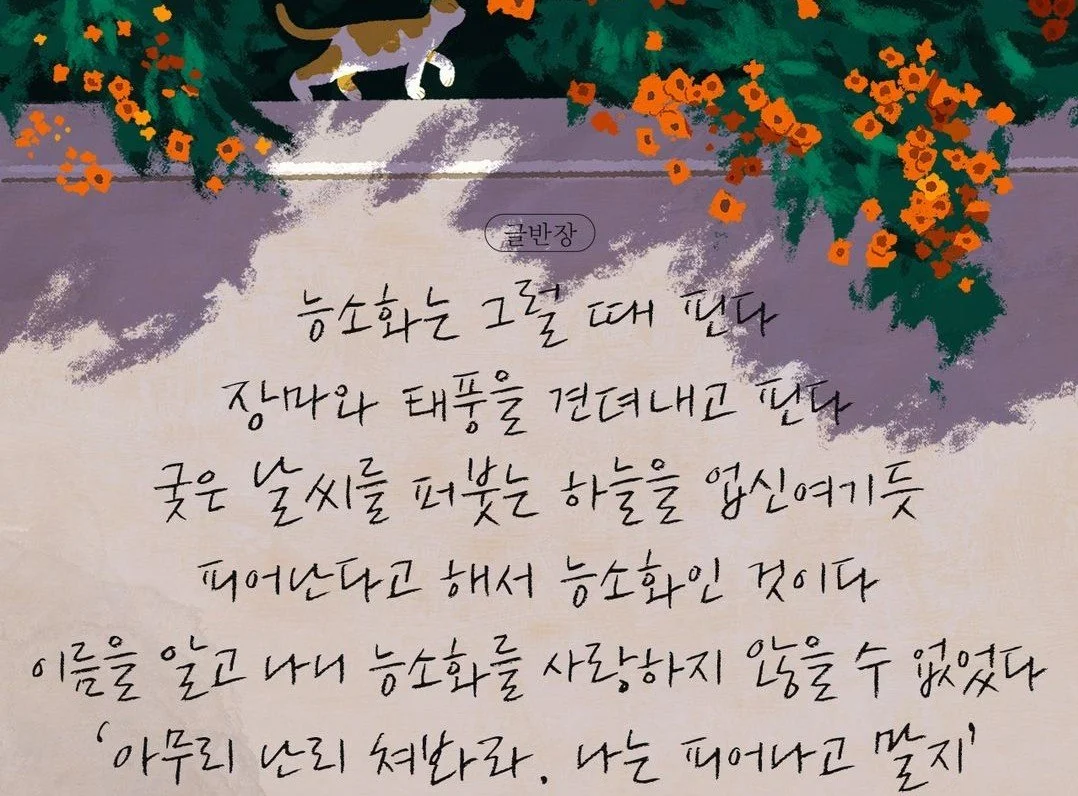 글반장
능소화는 그럴 때 핀다
장마와 태풍을 견뎌내고 핀다
궂은 날씨를 퍼붓는 하늘을 업신여기듯
피어난다고 해서 능소화인 것이다
이름을 알고 나니 능소화를 사랑하지 않을 수 없었다
‘아무리 난리 쳐봐라. 나는 피어나고 말지’